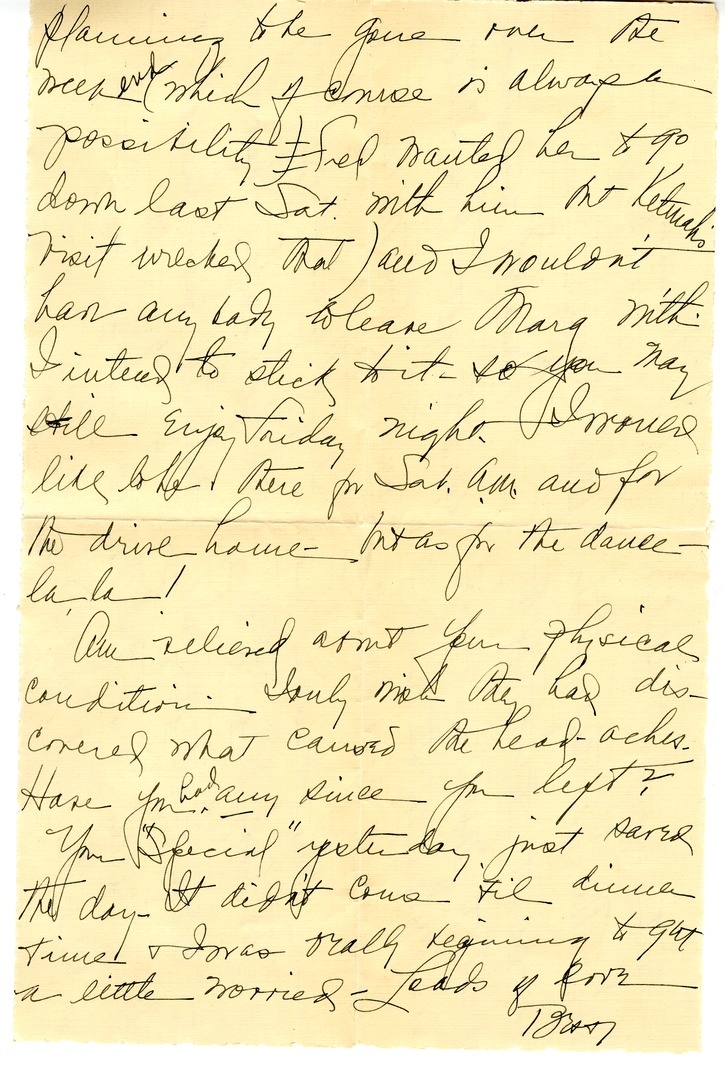 planning to be gone over the
weekend (which of course is always a
possibility) Fred wanted her to go
down last Sat. with him but
visit wrecked that) and I wouldn't
have any body to leave Marg with.
I intend to stick to it - so you may
still enjoy Friday night. I would
like to be there for Sat. A.M. and for
the drive home - but as for the dance -
la, la!
Am relieved about your physical
condition I only wish they had dis-
covered what caused the head-aches.
Have you had any since you left?
Your "Special" yesterday just saved
the day - It didn't come til dinner
time & I was really beginning to get
a little worried - Loads of love
Bess